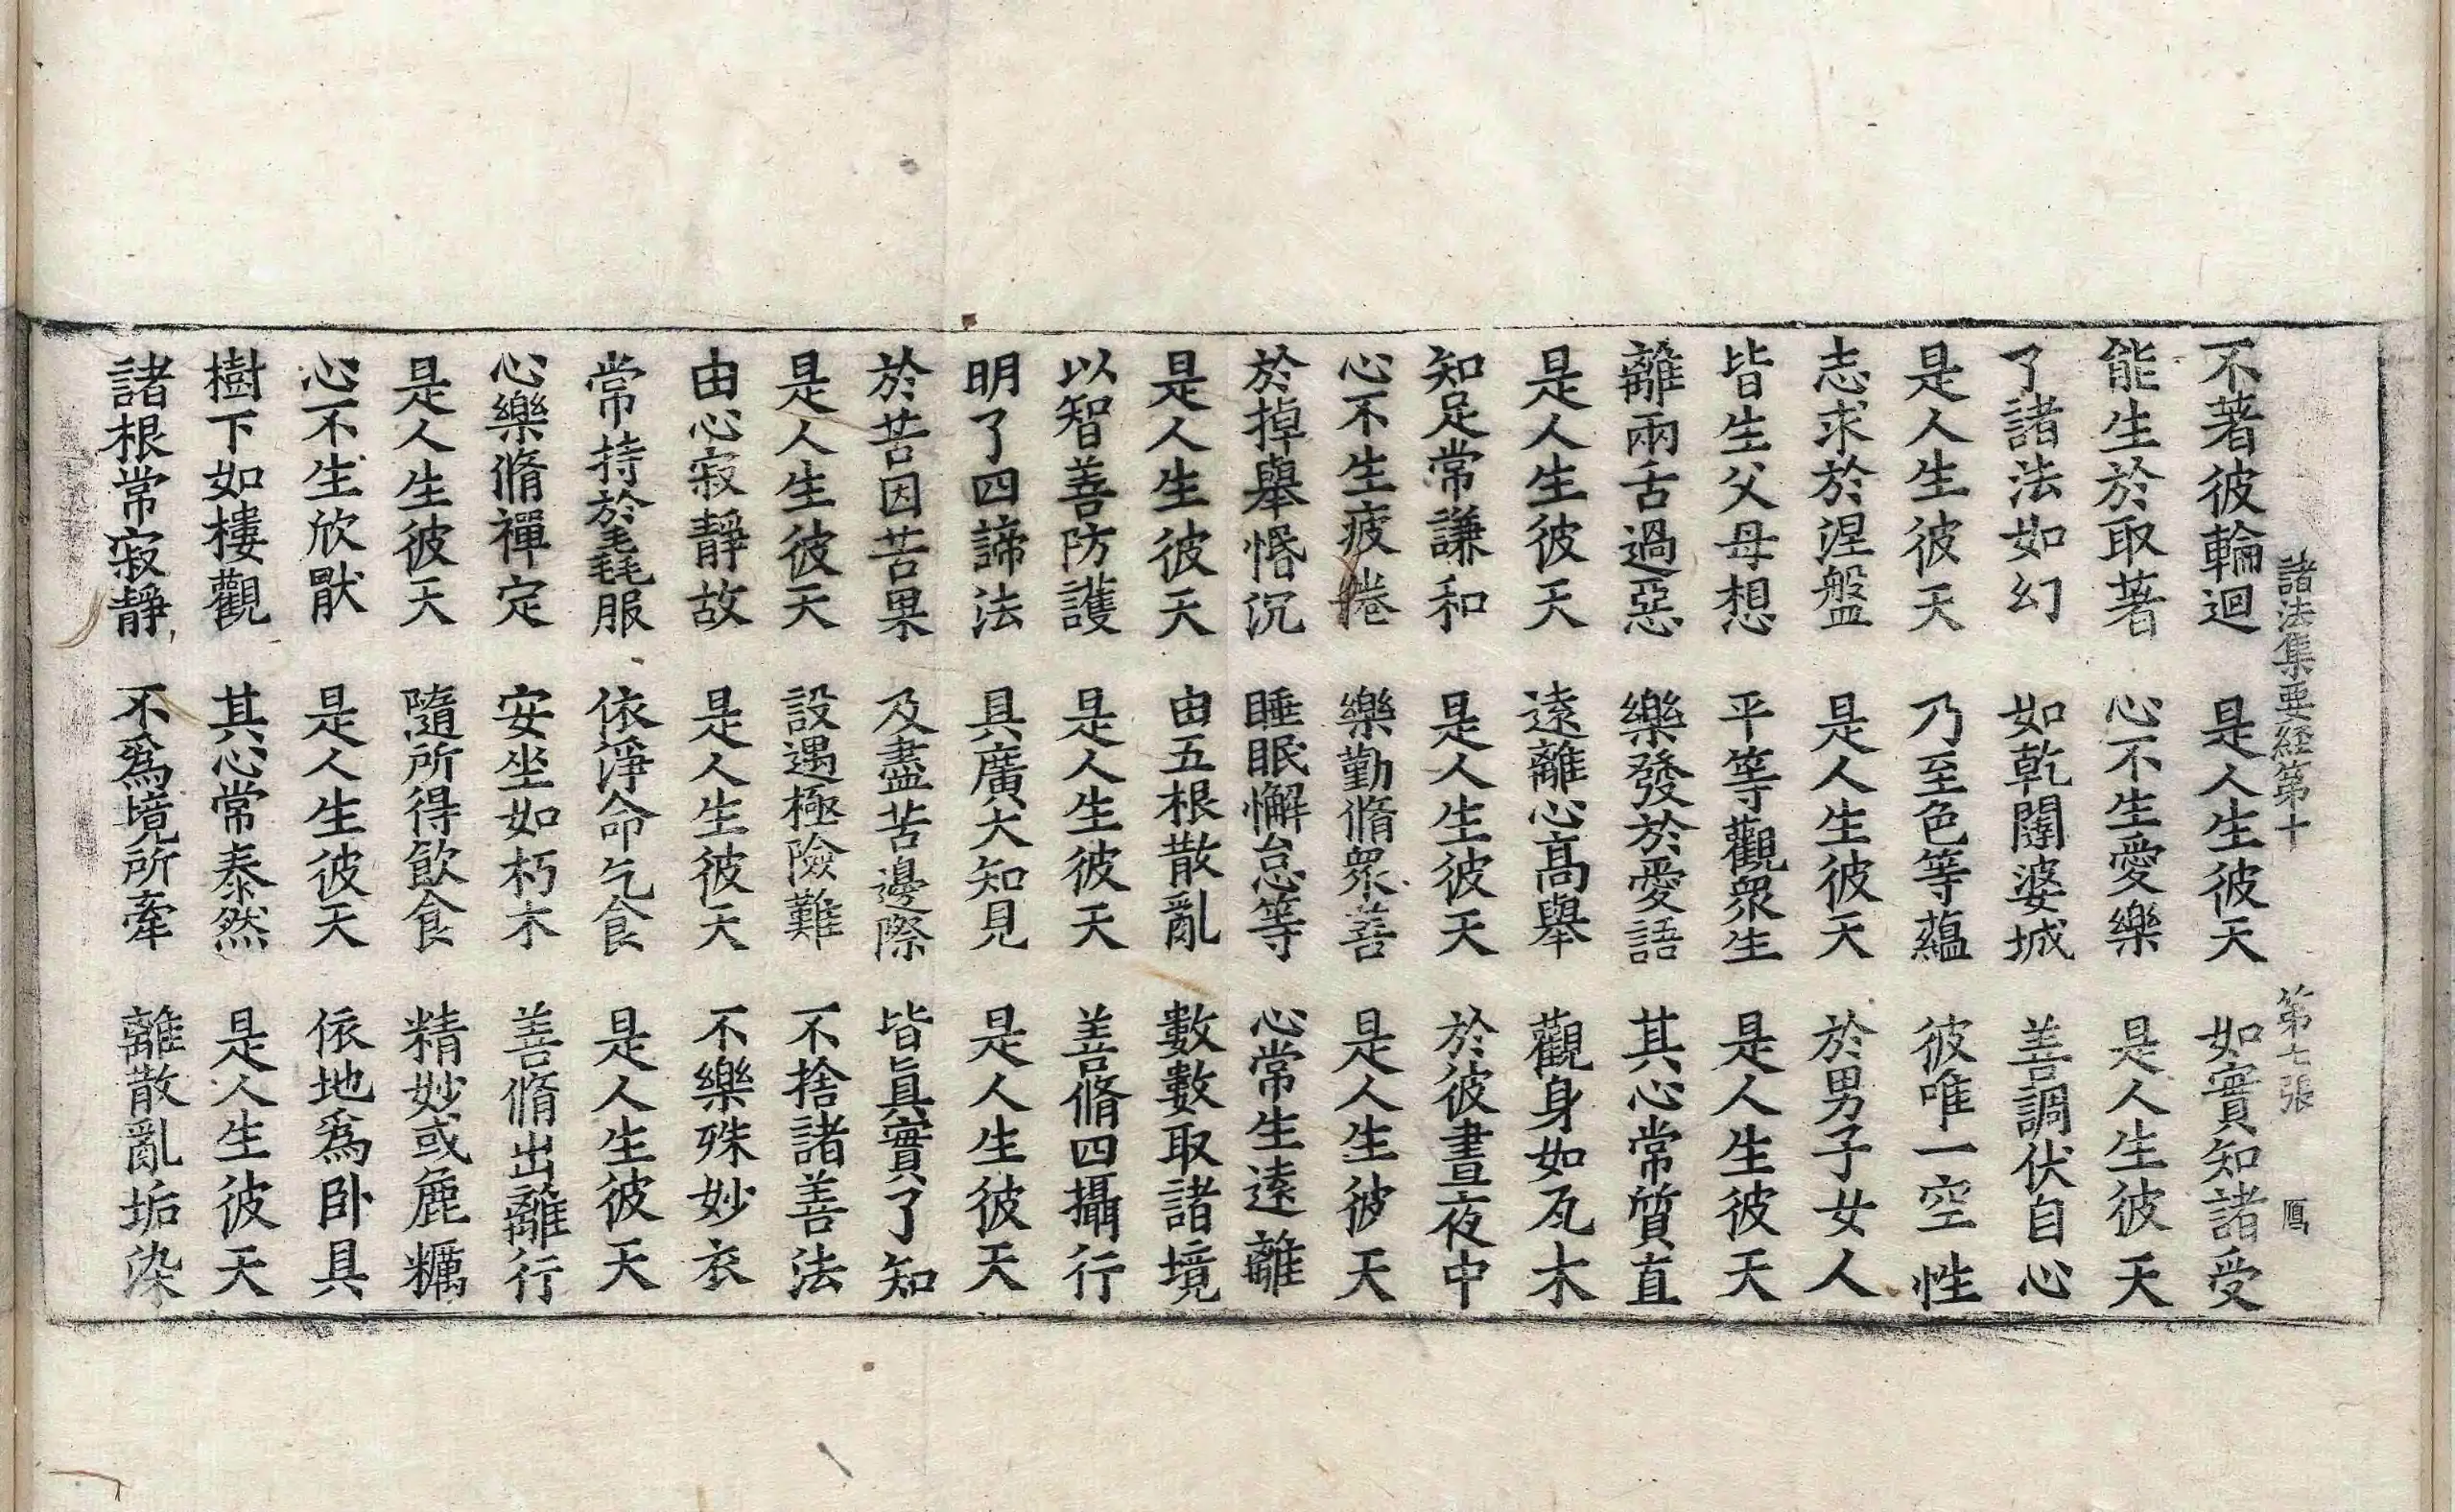 諸法集要経第十 第七張 鴈
不著彼輪迴 是人生彼天 如實知諸受
能生於取著 心不生愛樂 是人生彼天
了諸法如幻 如乾闥婆城 善調伏自心
是人生彼天 乃至色等蘊 彼唯一空性
志求於涅盤 是人生彼天 於男子女人
皆生父母想 平等觀衆生 是人生彼天
離兩舌過惡 樂發於愛語 其心常質直
是人生彼天 遠離心高舉 觀身如瓦木
知足常謙和 是人生彼天 於彼晝夜中
心不生疲惓 樂勤脩衆善 是人生彼天
於掉舉惛沉 睡眠懈怠等 心常生遠離
是人生彼天 由五根散亂 數數取諸境
以智善防護 是人生彼天 善脩四攝行
明了四諦法 具廣大知見 是人生彼天
於苦因苦果 及盡苦邊際 皆眞實了知
是人生彼天 設遇極險難 不捨諸善法
由心寂靜故 是人生彼天 不樂殊妙衣
常持於毳服 依淨命乞食 是人生彼天
心樂脩禪定 安坐如朽木 善脩出離行
是人生彼天 隨所得飲食 精妙或麁糲
心不生欣猒 是人生彼天 依地爲卧具
樹下如樓觀 其心常泰然 是人生彼天
諸根常寂靜 不爲境所牽 離散亂垢染